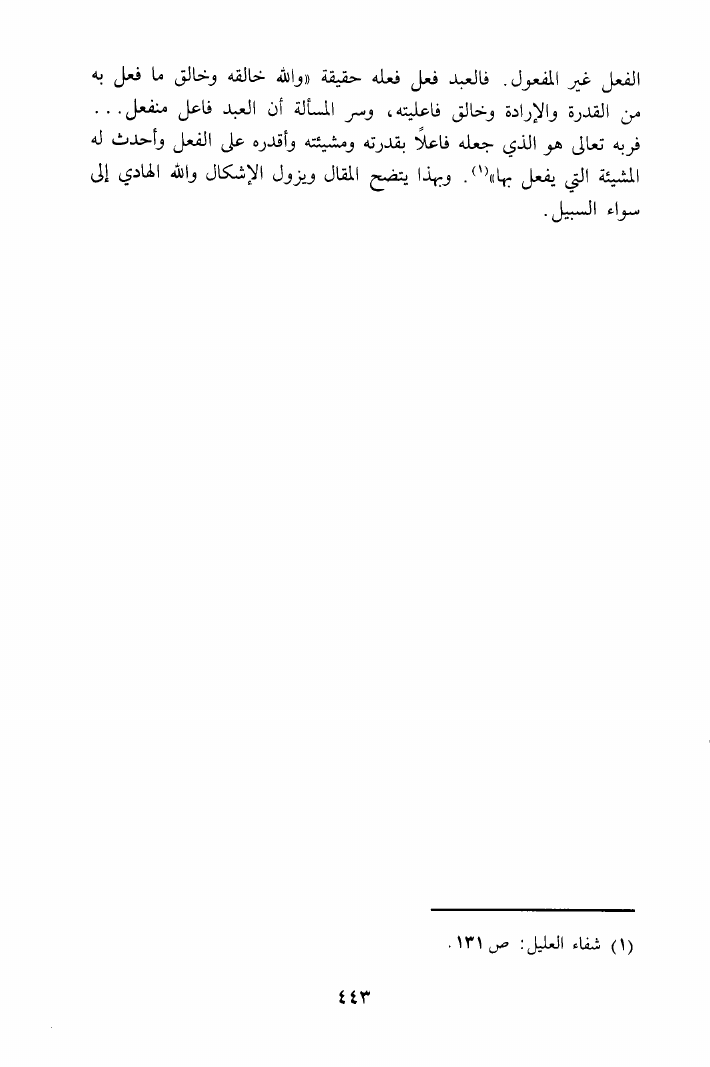 الفعل غير المفعول. فالعبد فعل فعله حقيقة «والله خالقه وخالق ما فعل به
من القدرة والإرادة وخالق فاعليته، وسر المسألة أن العبد فاعل منفعل...
فربه تعالى هو الذي جعله فاعلاً بقدرته ومشيئته وأقدره على الفعل وأحدث له
المشيئة التي يفعل بها»(١). وبهذا يتضح المقال ويزول الإشكال والله الهادي إلى
سواء السبيل.
(١) شفاء العليل: ص ١٣١.
٤٤٣